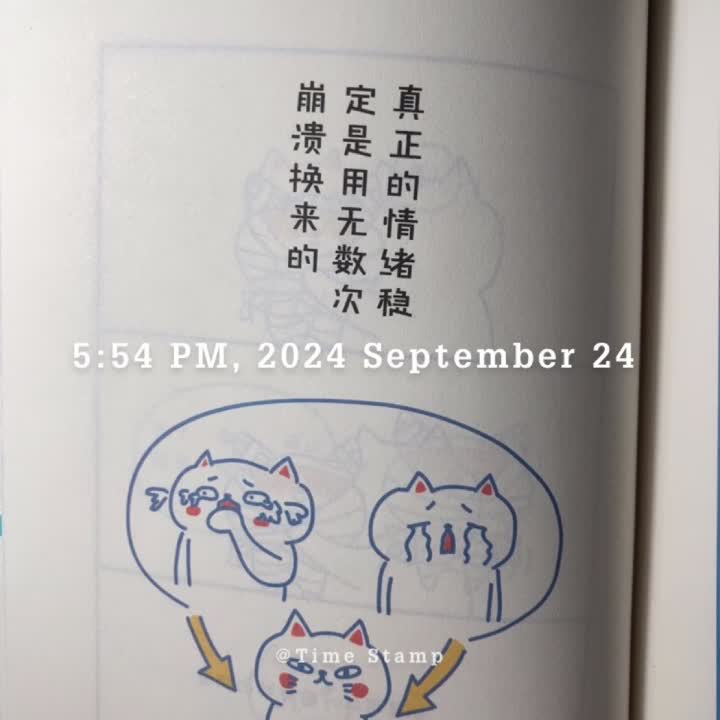 真正的情绪稳
定是用无数次
崩溃换来的
5:54 PM, 2024 September 24
@Time Stamp